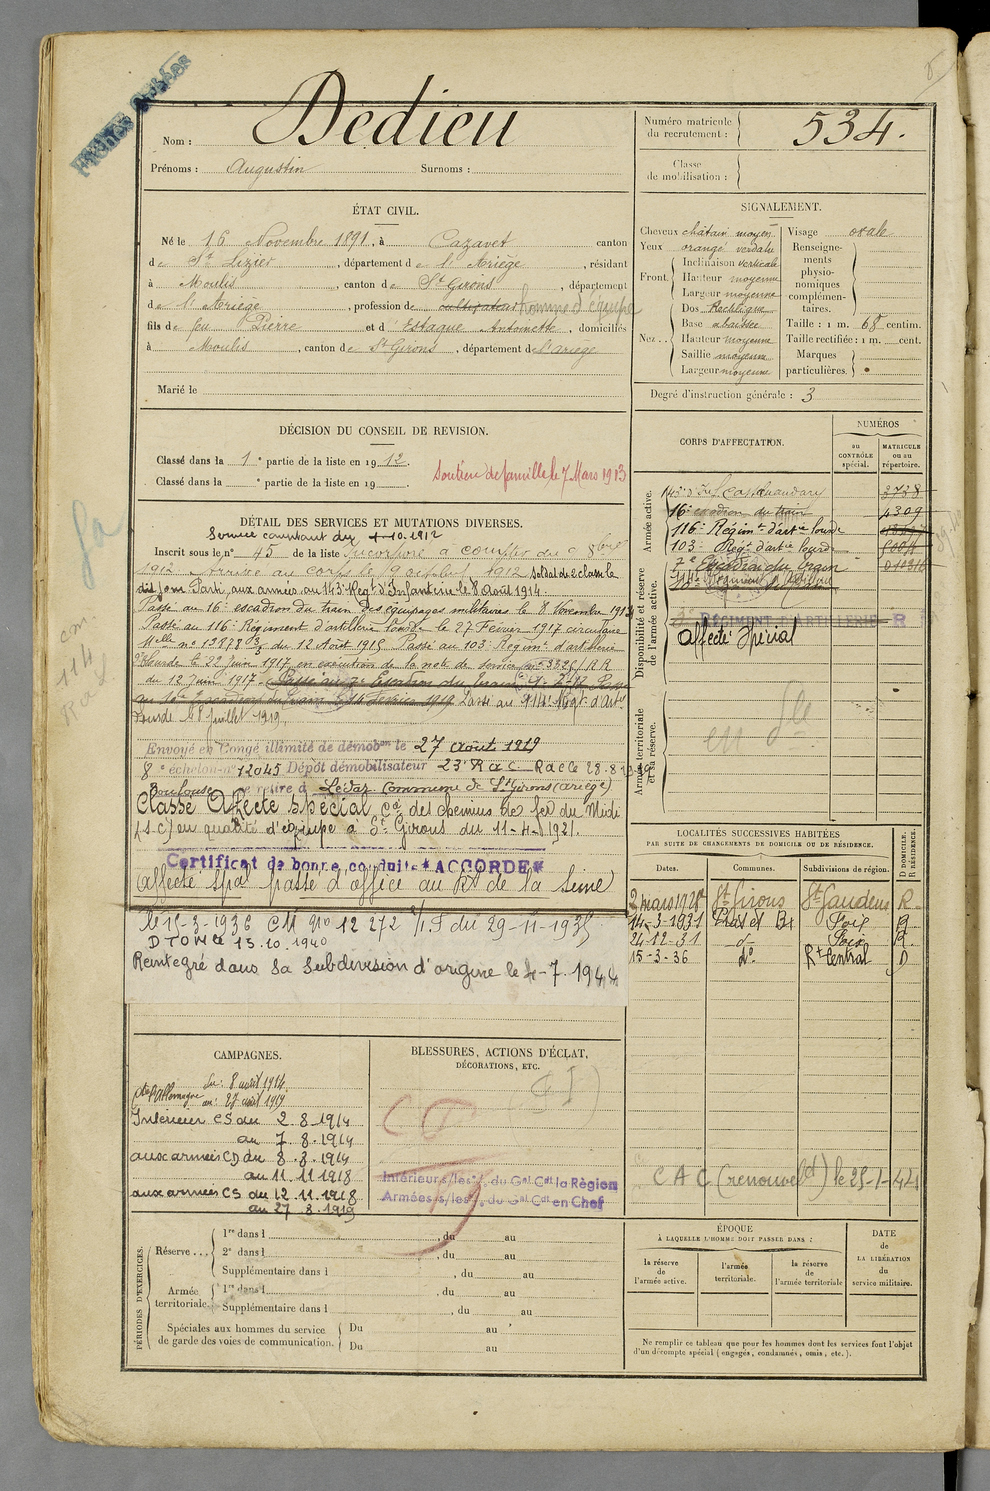 Nom : Dedieu
Prénoms : Augustin Surnoms :
Numéro matricule du recrutement : 534.
Classe de mobilisation :
ÉTAT CIVIL.
Né le 16 Novembre 1891, à Cazavet canton
de St Lizier, département de l'Ariège, résidant
à Moulis, canton de St Girons, département
de l'Ariège, profession de cultivateur homme d'équipe
fils de feu Pierre et d'Estaque Antoinette, domiciliés
à Moulis, canton de St Girons, département de l'ariège
Marié le
SIGNALEMENT.
Cheveux châtain moyen
Yeux orangé verdatre
Front. Inclinaison verticale
Hauteur moyenne
Largeur moyenne
Nez. Dos Rectiligne
Base abaissée
Hauteur moyenne
Saillie moyenne
Largeur moyenne
Visage ovale
Renseignements physionomiques complémentaires.
Taille : 1 m. 68 centim.
Taille rectifiée : 1 m. cent.
Marques particulières.
Degré d'instruction générale : 3
DÉCISION DU CONSEIL DE REVISION.
Classé dans la 1e partie de la liste en 1912.
Classé dans la e partie de la liste en 19
Soutien de famille le 7 Mars 1913
DÉTAIL DES SERVICES ET MUTATIONS DIVERSES.
Service comptant du 1-10-1912
Inscrit sous le n° 45 de la liste Incorporé à compter du 8bre
1912 Arrivé au corps le 9 octobre 1912 soldat de 2e classe le
dit jour Parti aux armées au 143e Régt d'Infanterie le 8 Août 1914.
Passé au 16e escadron du train des équipages militaires le 8 Novembre 191
Passé au 116e Régiment d'artillerie lourde le 27 Février 1917 circulaire
Mlle n° 12878 3/3 du 12 Août 1915 Passé au 103e Régimt d'artillerie
Lourde le 22 juin 1917 en exécution de la note de service n° 3325/RR
du 12 Juin 1917. Passé au 7e Escadron du train
au Escadron du train le 14 Février 1919 Passé au 114e Régt d'Artie
Lourde le 8 Juillet 1919.
Envoyé en Congé illimité de démobon le 27 août 1919
8e échelon n° 12045 Dépôt démobilisateur 23e R.a.c. Racle 28-8-19
Toulouse se retire à Lédar Commune de St Girons (Ariège)
Classé Affecté spécial Cie des chemins de fer du Midi
(S.C) en qualité d'équipe à St Girons du 11-4-1921.
Certificat de bonne conduite *ACCORDÉ*
(affecté spal passé d'office au Rt de la Seine)
le 15-3-1936 CM n° 12 272 2/1.S du 29-11-1935
15.10.1940
Réintégré dans sa subdivision d'origine le 4-7.1944
CORPS D'AFFECTATION.
NUMÉROS
au CONTRÔLE spécial.
MATRICULE ou au répertoire.
Armée active.
143e d'Inf. Castelnaudary 3738
16e escadron du train 4309
116e Régimt d'artie lourde
103e Régt d'artie lourde
Disponibilité et réserve de l'armée active.
7e Escadron du train
RÉGIMENT D'ARTILLERIE R
Affecté Spécial
Armée territoriale et sa réserve.
LOCALITÉS SUCCESSIVES HABITÉES
PAR SUITE DE CHANGEMENTS DE DOMICILE OU DE RÉSIDENCE.
Dates. Communes. Subdivisions de région. D DOMICILE. R RÉSIDENCE.
2 mars 1928 St Girons St Gaudens R.
14-3-1931 Prat et Bx Foix R.
24-12-31 d° Foix R.
15-3-36 d° Rt Central D
CAC (renouveld) le 25-1-42
CAMPAGNES.
cte l'Allemagne du : 8 août 1914
au : 27 août 1919
Intérieur CS du 2.8.1914
au 7.8.1914
aux armées CD du 8.8.1914
au 11.11.1918
aux armées CS du 12.11.1918
au 27.8.1919
BLESSURES, ACTIONS D'ÉCLAT, DÉCORATIONS, ETC.
Intérieur s/les .du Gal Cdt la Région
Armées s/les .du Gal Cdt en Chef
PÉRIODES D'EXERCICES.
Réserve ... 1re dans l , du au
2e dans l , du au
Supplémentaire dans l , du au
Armée territoriale 1re dans l , du au
Supplémentaire dans l , du au
Spéciales aux hommes du service de garde des voies de communication. Du au
Du au
ÉPOQUE
À LAQUELLE L'HOMME DOIT PASSER DANS :
la réserve de l'armée active.
l'armée territoriale.
la réserve de l'armée territoriale
DATE de LA LIBÉRATION du service militaire.
Ne remplir ce tableau que pour les hommes dont les services font l'objet
d'un décompte spécial (engagés, condamnés, omis, etc.).